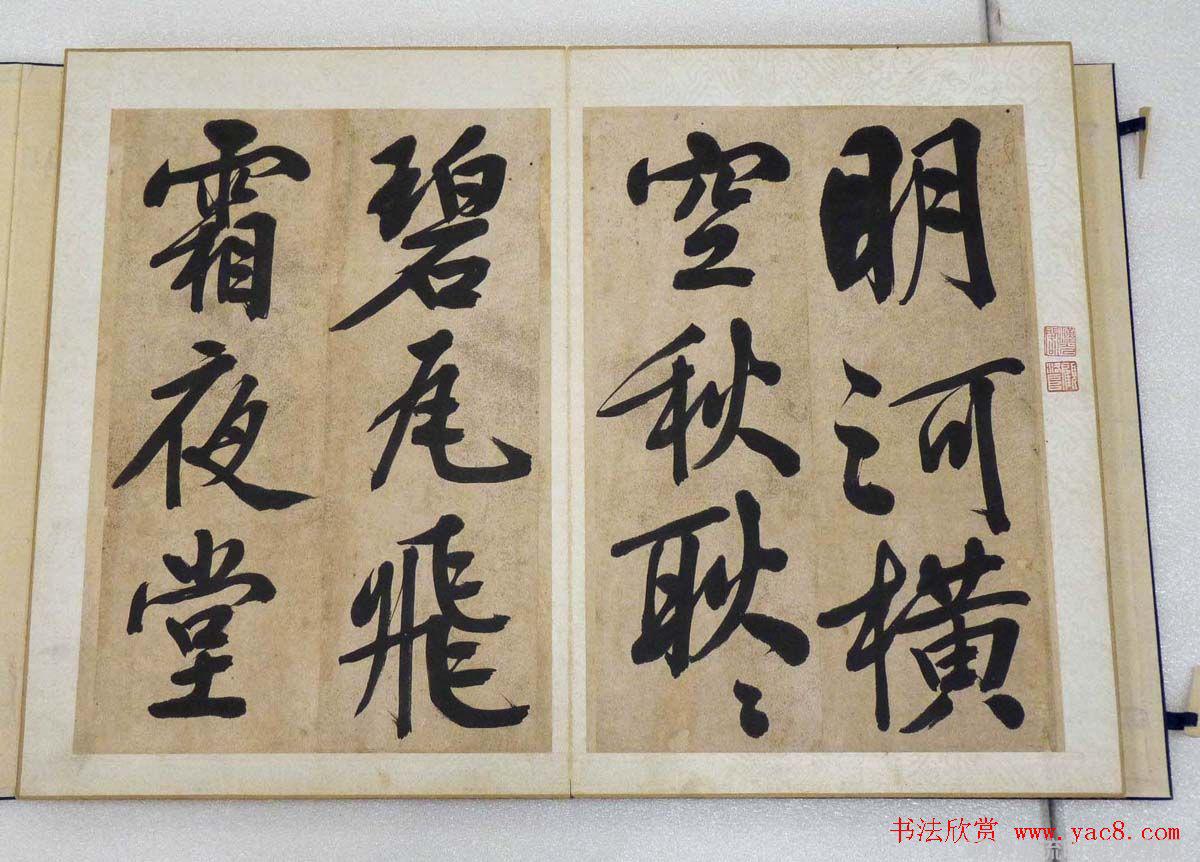 明河横
空秋耿〻
碧瓦飛
霜夜堂
书法欣赏 www.yac8.com